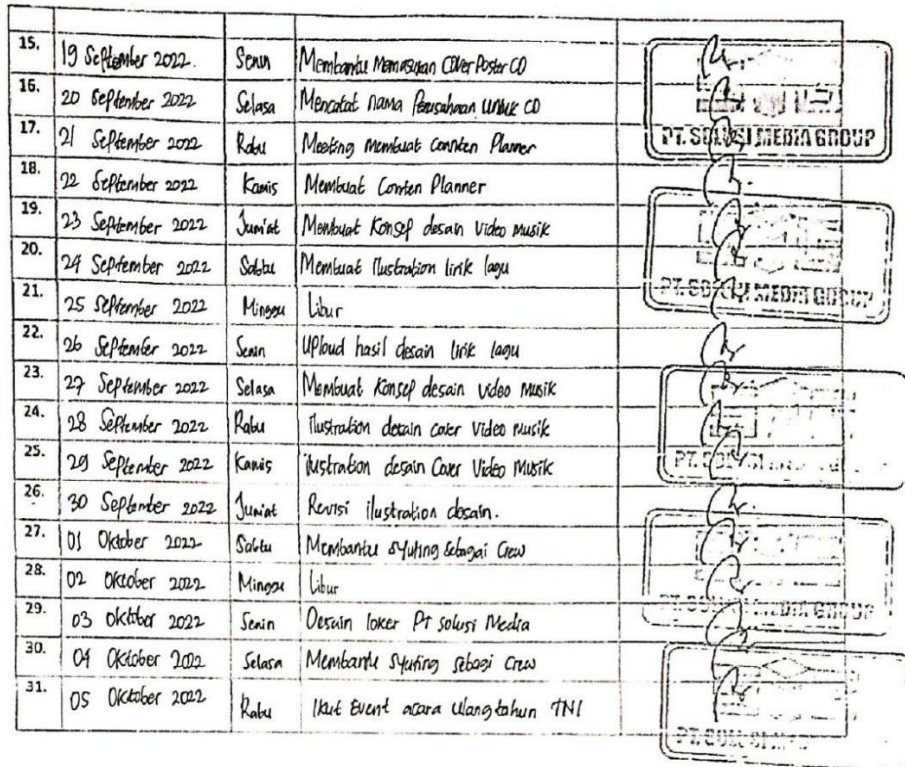 15. 19 September 2022. Senin Membantu Memasukan Cover Poster CD
16. 20 September 2022 Selasa Mencatat nama Perusahaan untuk CD
17. 21 September 2022 Rabu Meeting membuat Connten Planner
PT. SOLUSI MEDIA GROUP
18. 22 September 2022 Kamis Membuat Conten Planner
19. 23 September 2022 Jum'at Membuat Konsep desain Video Musik
20. 24 September 2022 Sabtu Membuat Ilustration lirik lagu
21. 25 September 2022 Minggu Libur
PT. SOLUSI MEDIA GROUP
22. 26 September 2022 Senin Uploud hasil desain lirik lagu
23. 27 September 2022 Selasa Membuat Konsep desain Video Musik
24. 28 September 2022 Rabu ilustration desain cover Video Musik
25. 29 September 2022 Kamis ilustration desain Cover Video Musik
PT. SOLUSI
26. 30 September 2022 Jum'at Revisi ilustration desain.
27. 01 Oktober 2022 Sabtu Membantu syuting sebagai Crew
28. 02 Oktober 2022 Minggu Libur
29. 03 Oktober 2022 Senin Desain loker PT solusi Media
PT. SOLUSI MEDIA GROUP
30. 04 Oktober 2022 Selasa Membantu syuting sebagi Crew
31. 05 Oktober 2022 Rabu Ikut Event acara Ulangtahun TNI
PT. SOLUSI